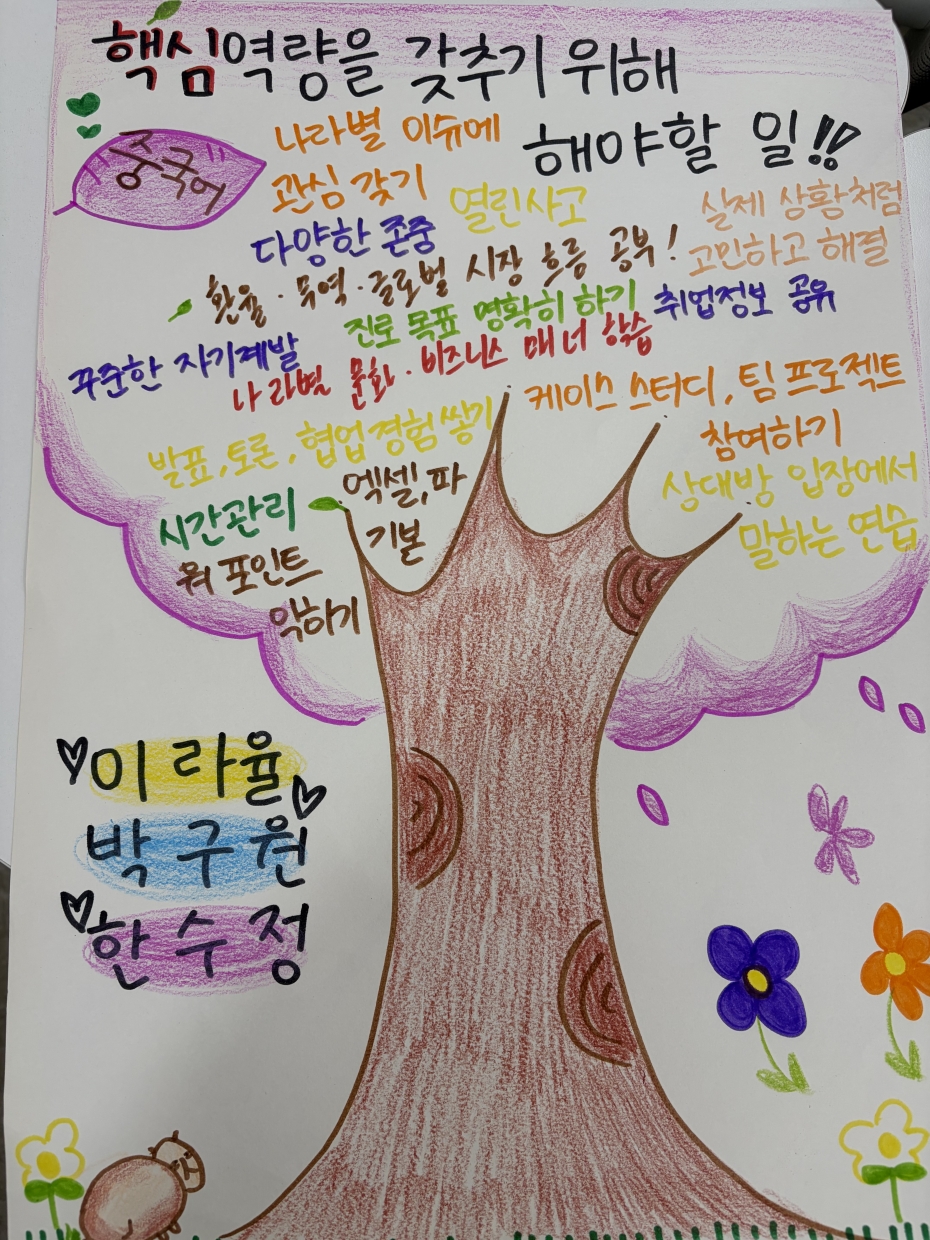 핵심역량을 갖추기 위해
해야할 일!!
중국어
나라별 이슈에
관심 갖기
열린사고
실제 상황처럼
고민하고 해결
다양한 존중
환율·무역·글로벌 시장 흐름 공부!
진로 목표 명확히 하기
취업정보 공유
꾸준한 자기계발
나라별 문화·비즈니스 매너 학습
케이스 스터디, 팀 프로젝트
참여하기
발표, 토론, 협업 경험 쌓기
상대방 입장에서
말하는 연습
시간관리
엑셀, 파
기본
워 포인트
익하기
이라율
박구원
한수정